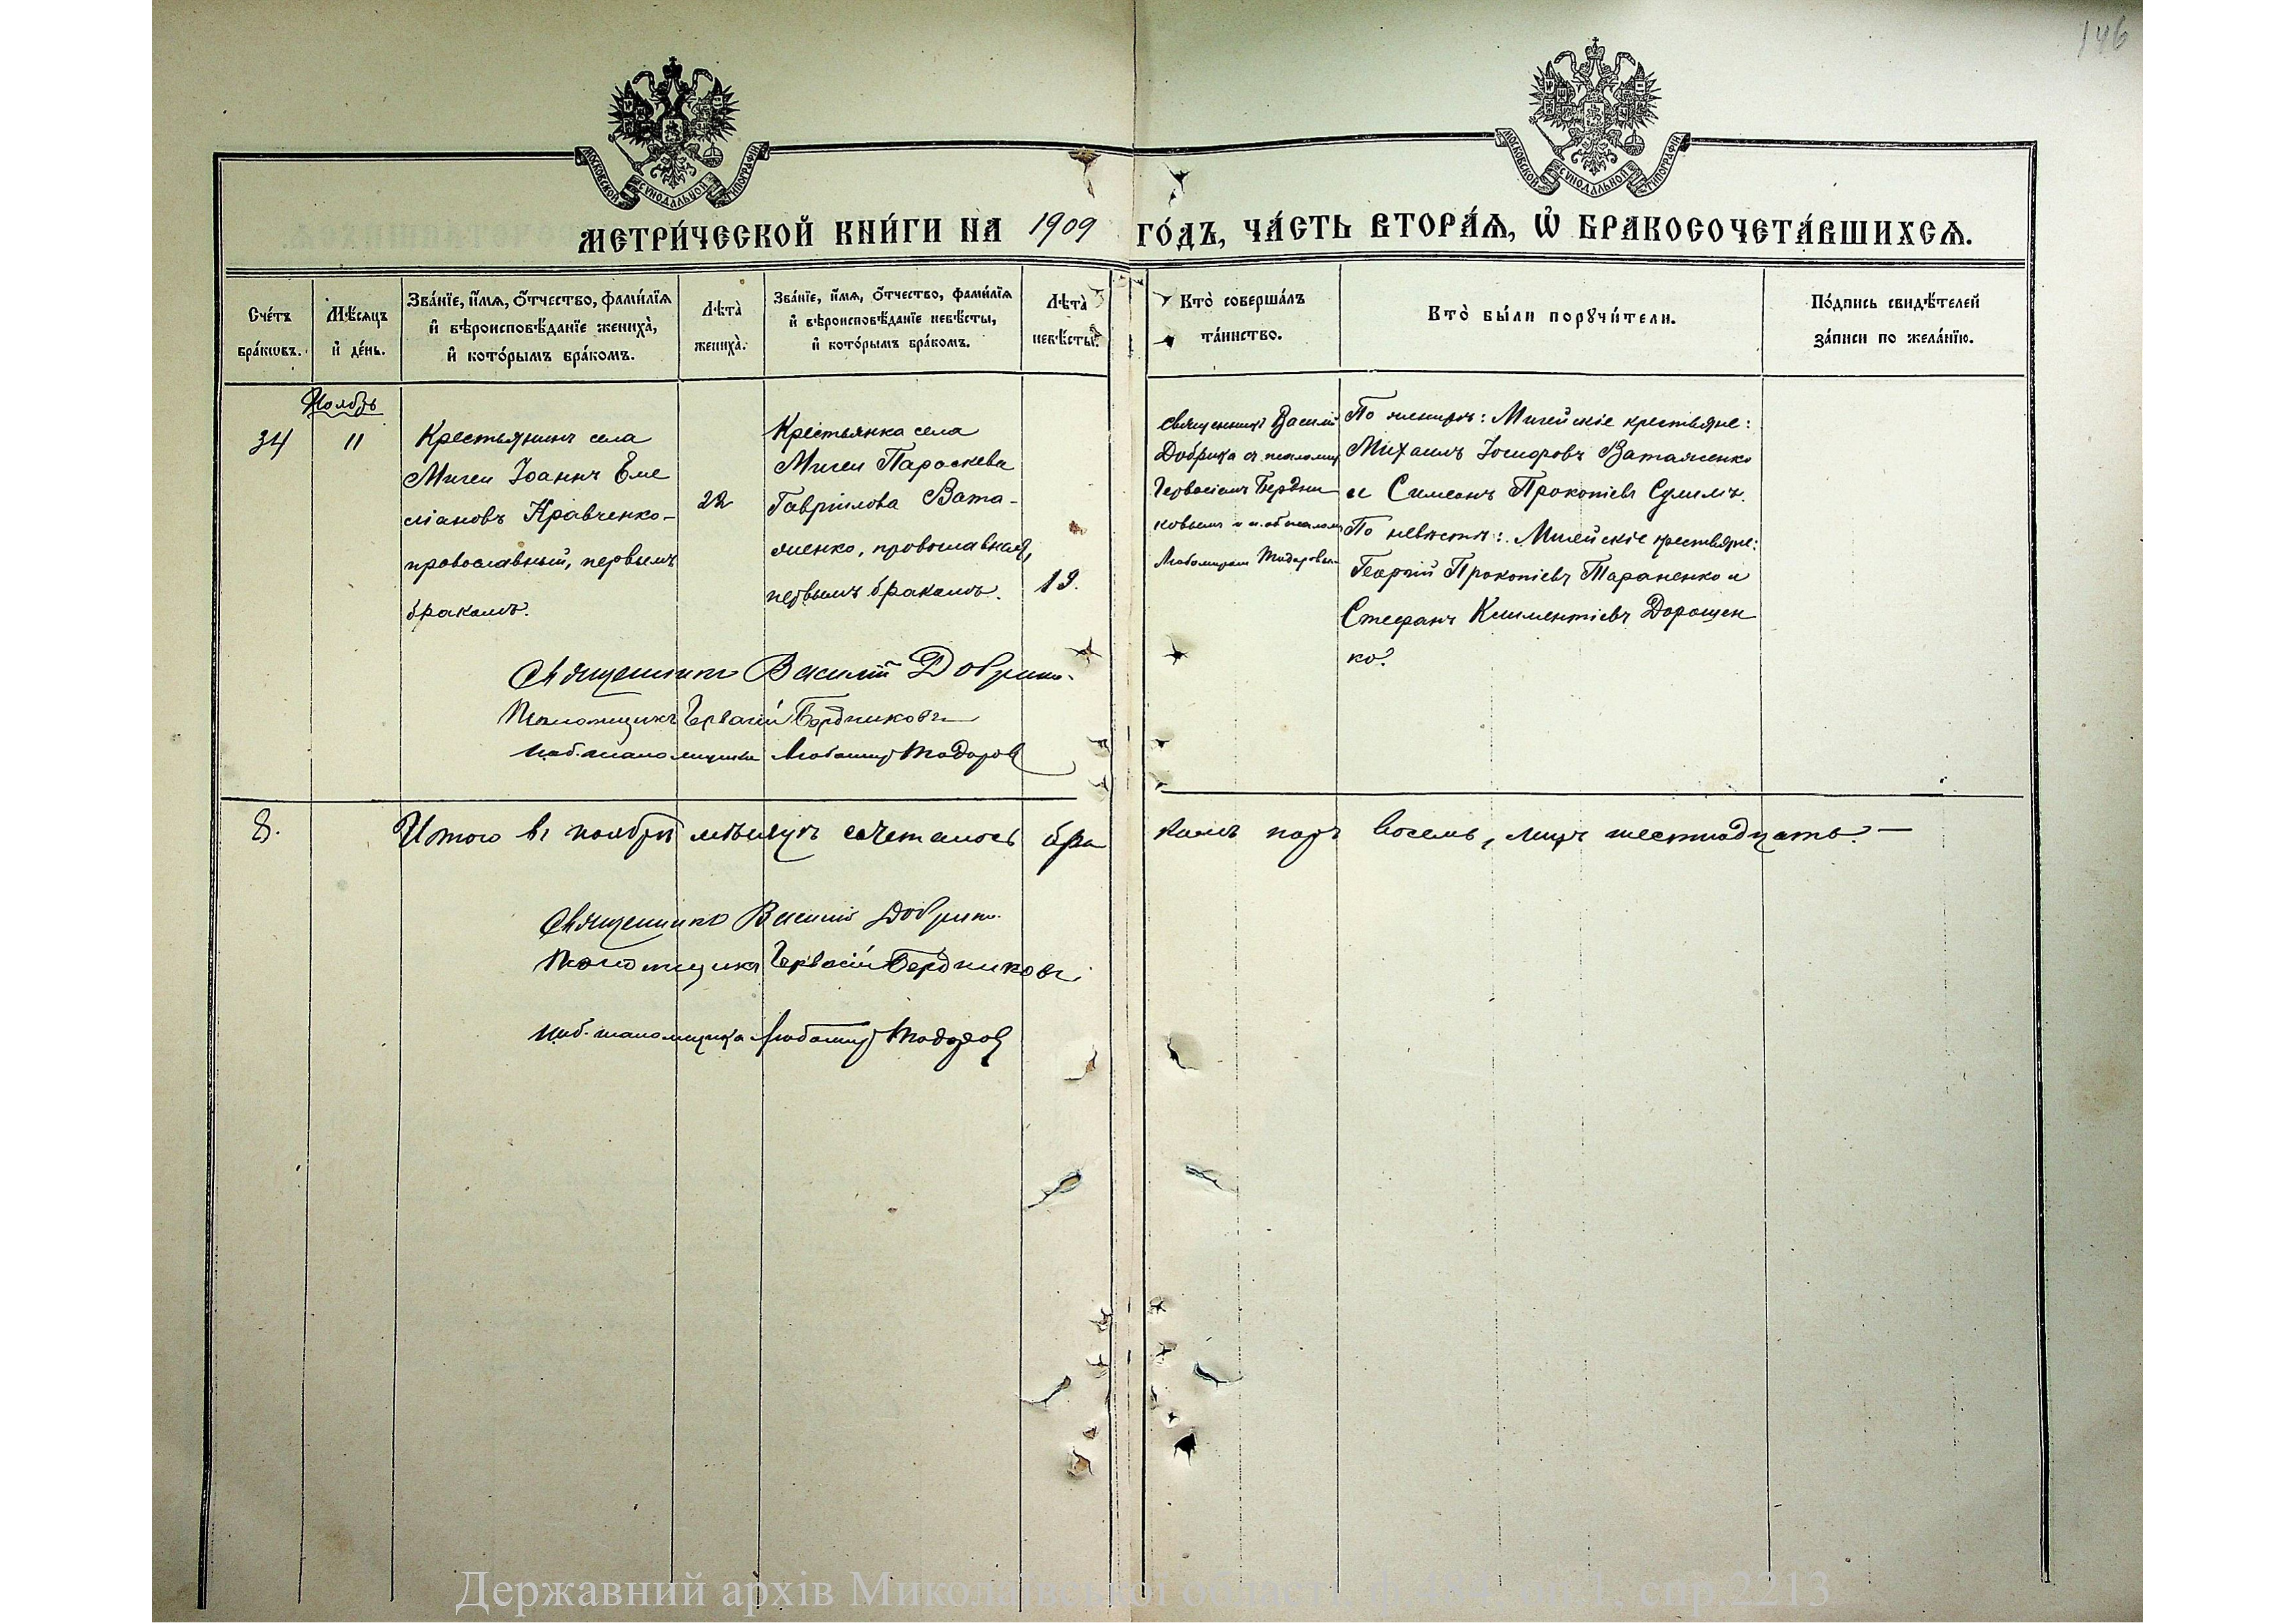 146
МОСКОВСКОЙ СѴНОДАЛЬНОЙ ТИПОГРАФІИ
МОСКОВСКОЙ СѴНОДАЛЬНОЙ ТИПОГРАФІИ
МЕТРИ́ЧЕСКОЙ КНИ́ГИ НА 1909 ГО́ДЪ, ЧА́СТЬ ВТОРА́Ѧ, Ѽ БРАКОСОЧЕТА́ВШИХСѦ.
Сче́тъ
бра́кωвъ.
Мѣ́сяцъ
и҆ де́нь.
Зва́нїе, и҆́мѧ, ѻ҆́тчество, фами́лїѧ
и҆ вѣроисповѣ́данїе жениха̀,
и҆ кото́рымъ бра́комъ.
Лѣта̀
жениха̀.
Зва́нїе, и҆́мѧ, ѻ҆́тчество, фами́лїѧ
и҆ вѣроисповѣ́данїе невѣ́сты,
и҆ кото́рымъ бра́комъ.
Лѣта̀
невѣ́сты.
Кто̀ соверша́лъ
та́инство.
Кто̀ бы́ли порꙋчи́тели.
По́дпись свидѣ́телей
за́писи по жела́нїю.
Ноябрь
34
11
Крестьянинъ села
Мигеи Іоаннъ Еме
ліановъ Кравченко-
православный, первымъ
бракомъ.
22
Крестьянка села
Мигеи Параскева
Гавріилова Вата-
женко, православная,
первымъ бракомъ.
19.
Священникъ Василій
Добрика съ псаломщ
Гервасіемъ Бердни
ковымъ и и. об. псалом
Любомиромъ Тодоровы
По женихѣ: Мигейскіе крестьяне:
Михаилъ Ватаженко
и Симеонъ Прокопіевъ Сулимъ.
По невѣстѣ: Мигейскіе крестьяне:
Георгій Прокопіевъ Тараненко и
Стефанъ Климентіевъ Дорошен
ко.
Священникъ Василій Добрика.
Псаломщикъ Гервасій Бердниковъ
И. об. псаломщика Любомиръ Тодоровъ
8.
Итого въ ноябрѣ мѣсяцѣ сочеталось бра
комъ паръ восемь, лицъ шестнадцать.—
Священникъ Василій Добрика.
Псаломщикъ Гервасій Бердниковъ
И. об. псаломщика Любомиръ Тодоровъ
Державний архів Миколаївської спр.2213